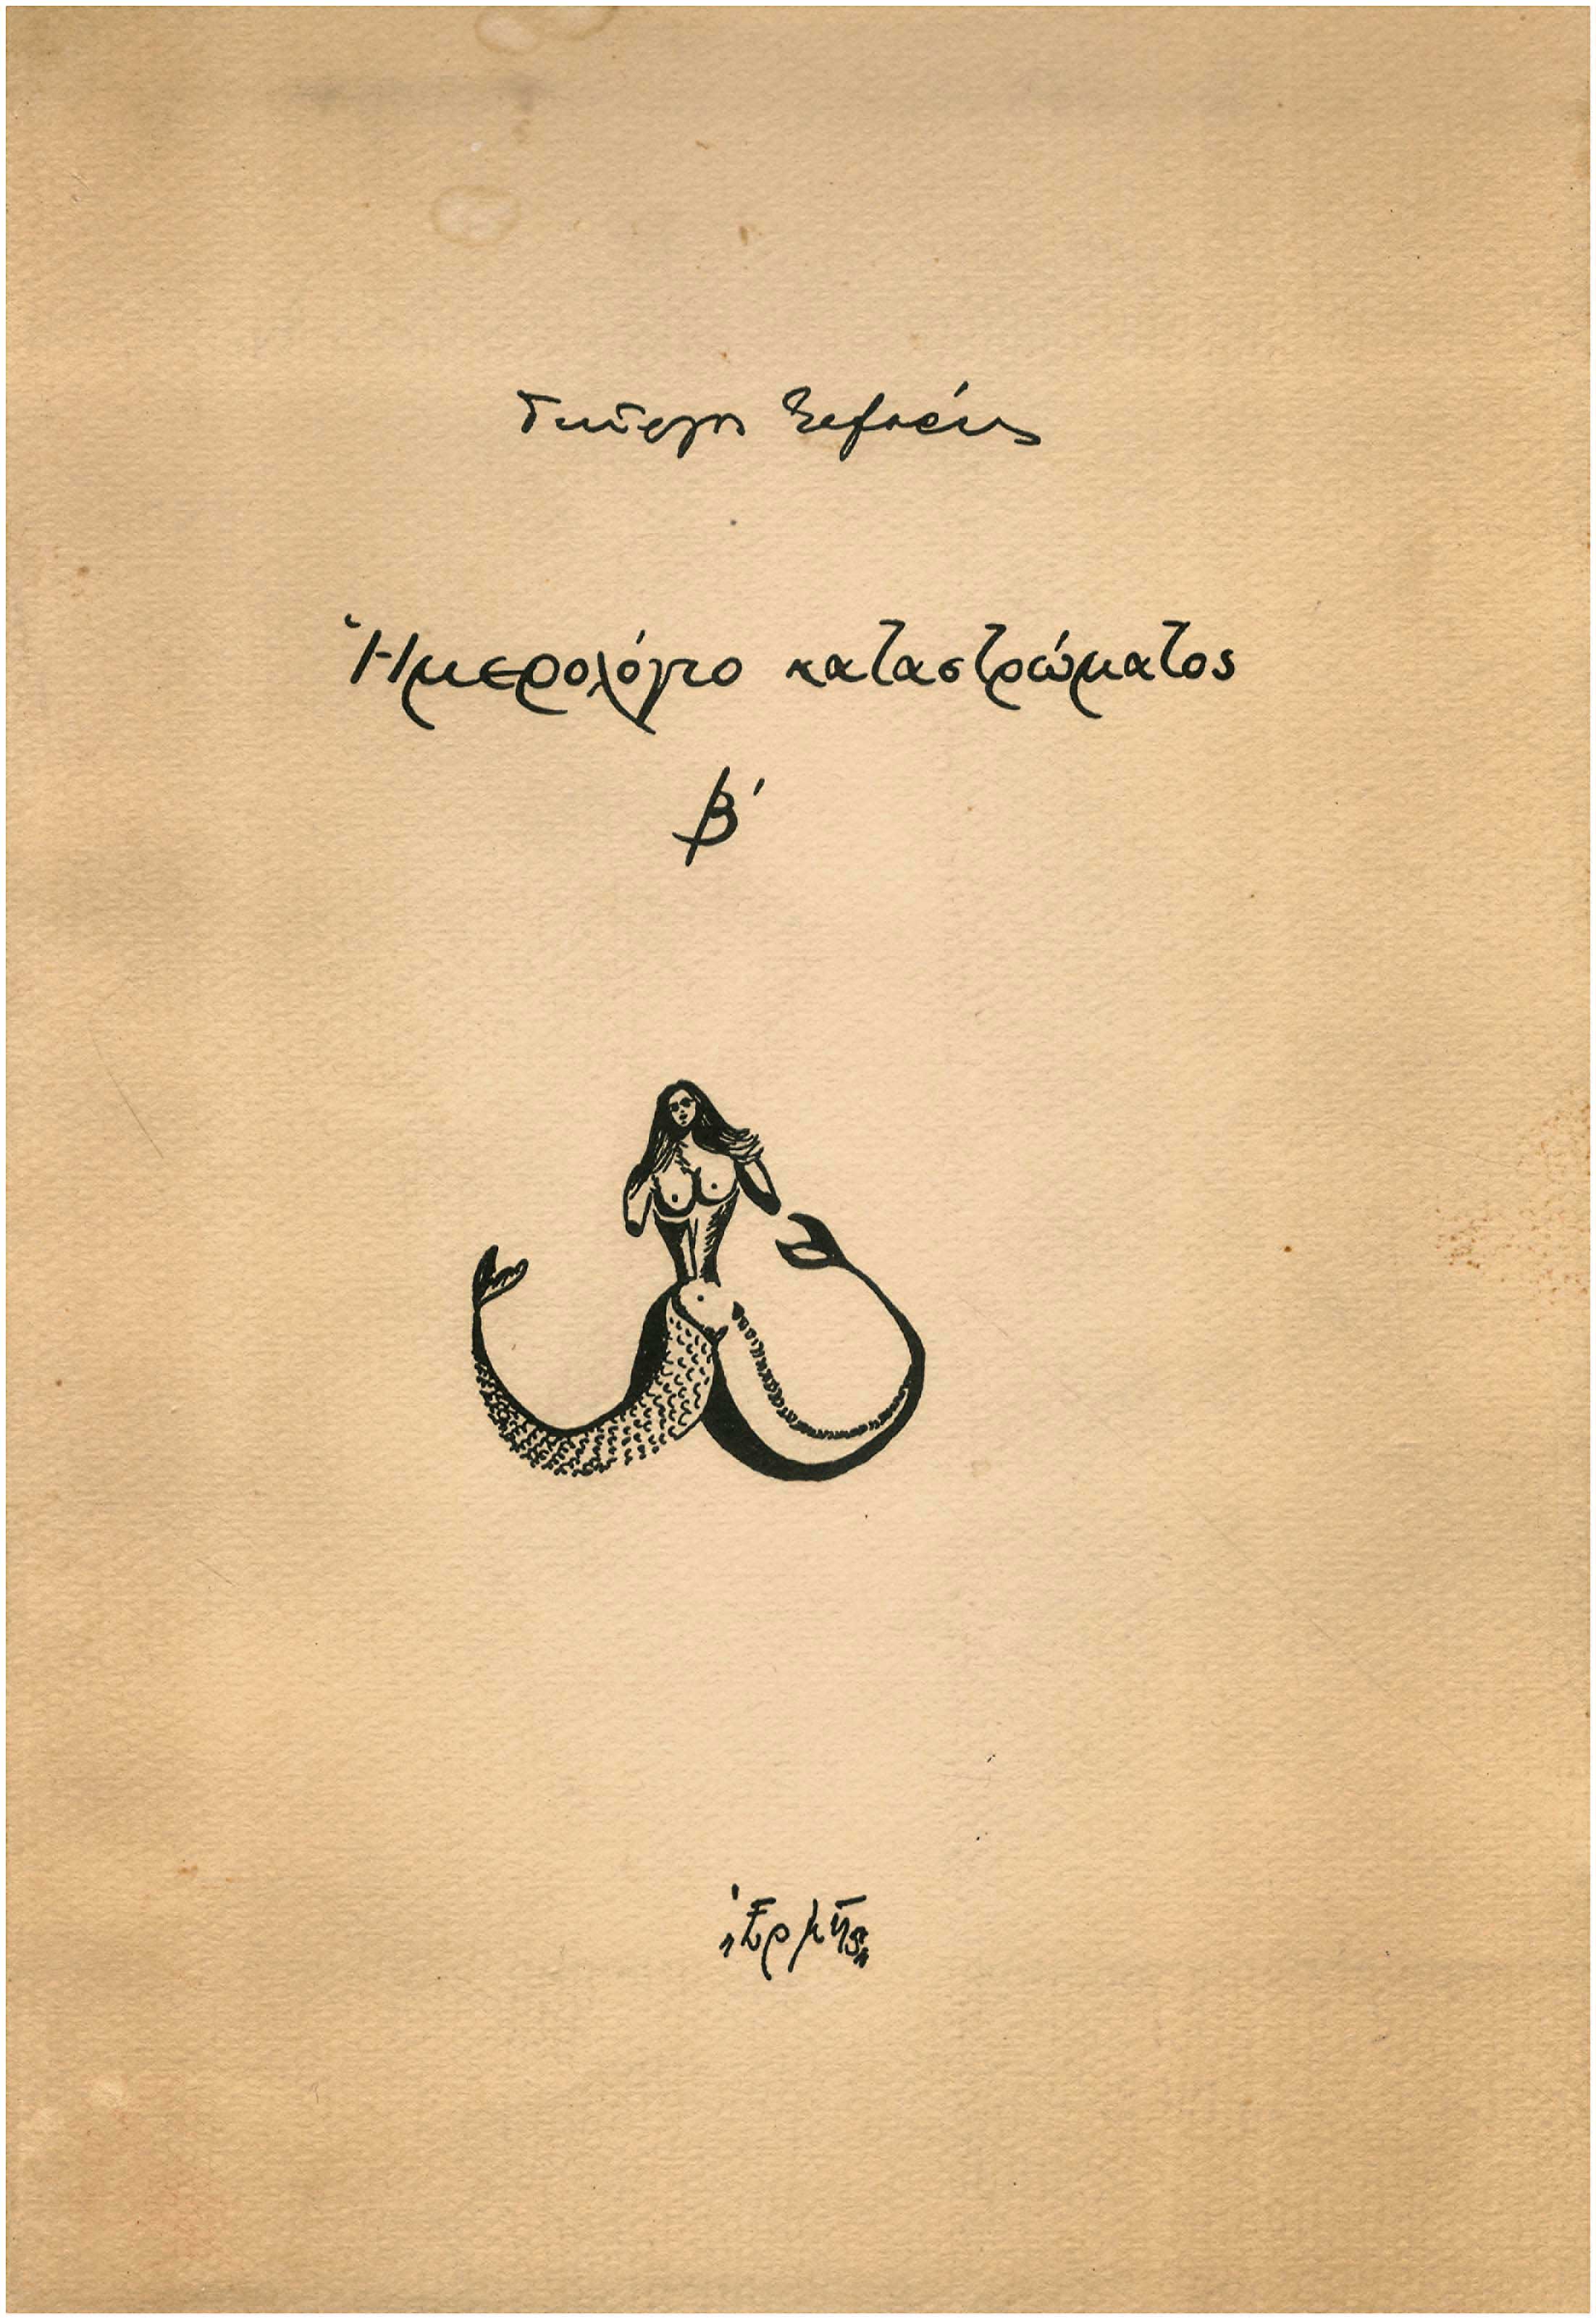 Γιῶργος Σεφέρης
Ἡμερολόγιο καταστρώματος
β'
„Ἑρμῆς"